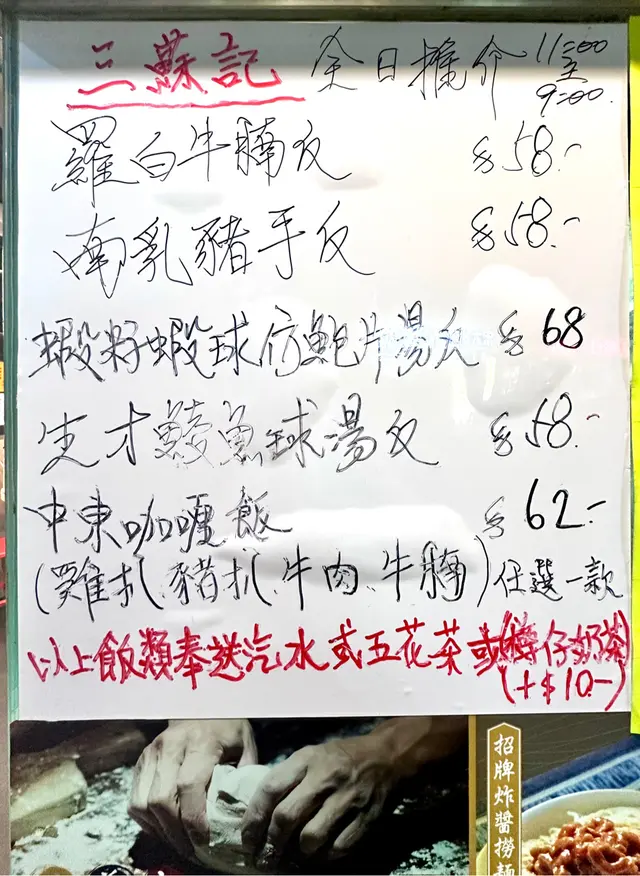 三蘇記 全日推介 11:00至9:00
羅白牛腩反 $58.-
南乳豬手反 $58.-
蝦籽蝦球仿鮑片湯反 $68
生才鯪魚球湯反 $58.-
中東咖喱飯 $62.-
(雞扒、豬扒、牛肉、牛腩)任選一款
以上飯類奉送汽水或五花茶或(樽仔奶茶
(+$10-)
招牌炸醬撈麵